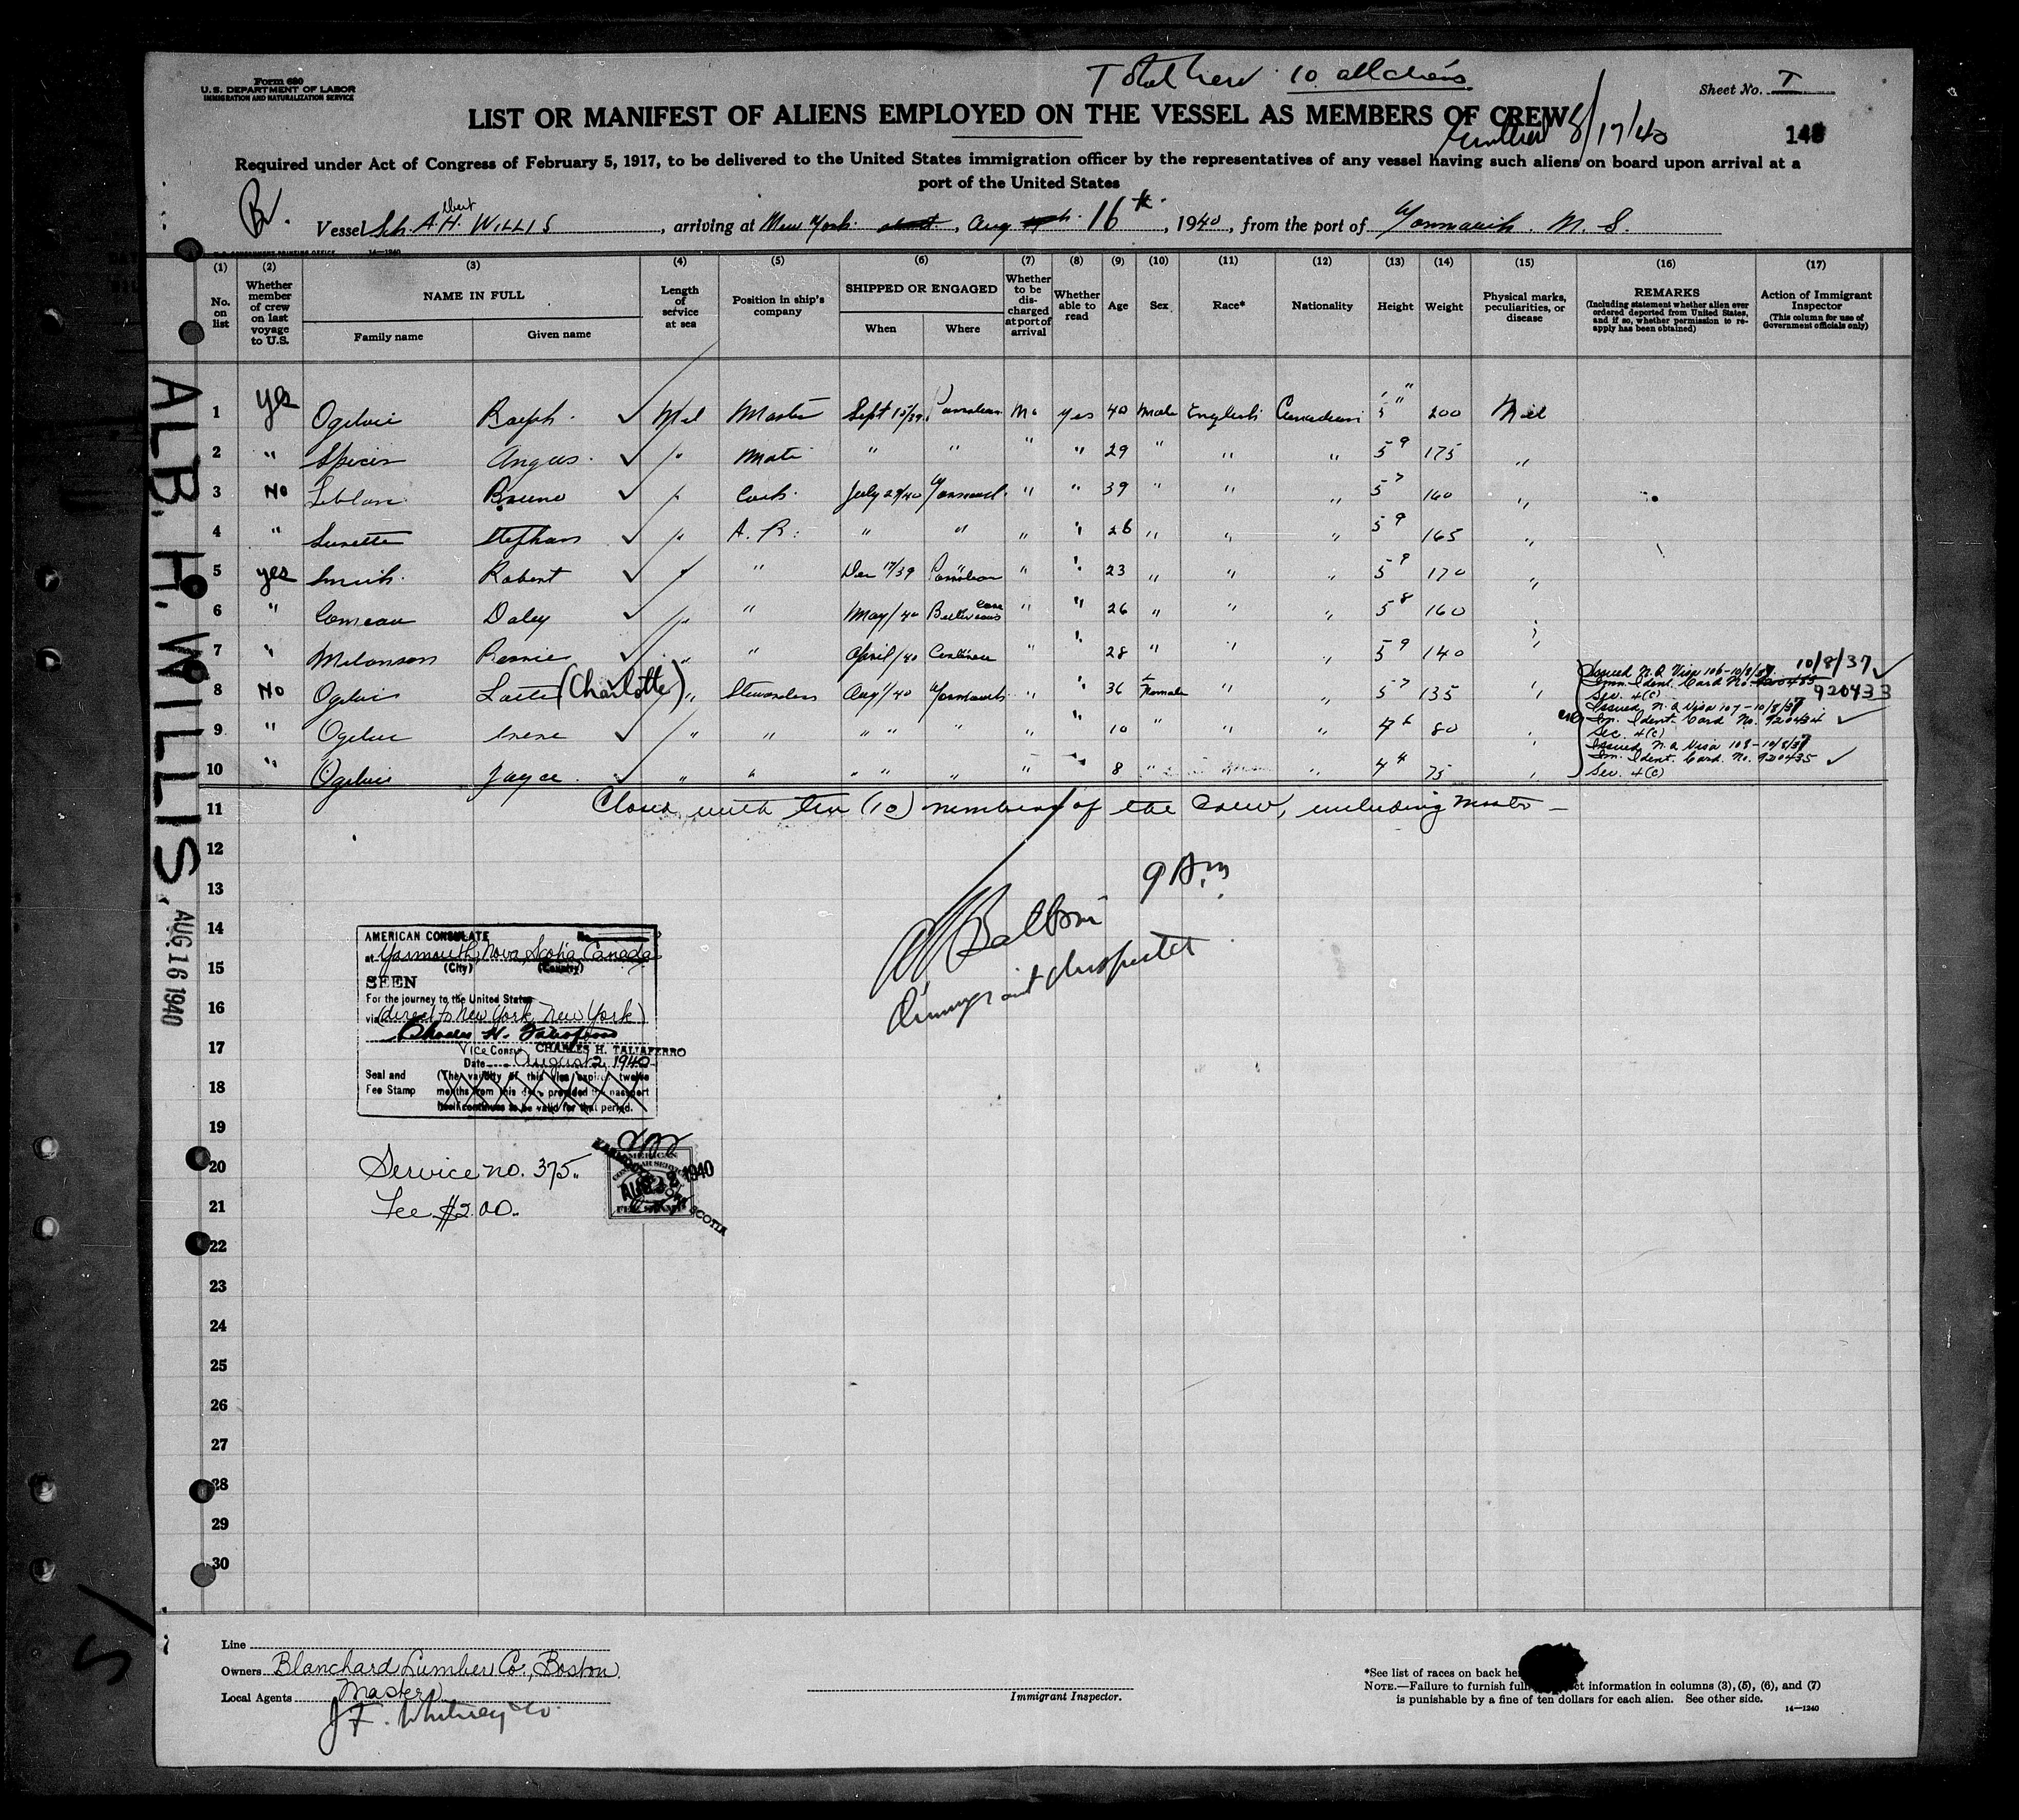 Form 680
U.S. DEPARTMENT OF LABOR
IMMIGRATION AND NATURALIZATION SERVICE
Total crew 10 all aliens
Sheet No. I
LIST OR MANIFEST OF ALIENS EMPLOYED ON THE VESSEL AS MEMBERS OF CREW
8/17/40
Required under Act of Congress of February 5, 1917, to be delivered to the United States immigration officer by the representatives of any vessel having such aliens on board upon arrival at a
port of the United States
Br. Vessel Sch. Albert H. WILLIS, arriving at New York, Aug 16th, 1940, from the port of Yarmouth. N. S.
14—1240
(1) (2) (3) (4) (5) (6) (7) (8) (9) (10) (11) (12) (13) (14) (15) (16) (17)
No. on list
Whether member of crew on last voyage to U.S.
NAME IN FULL
Family name
Given name
Length of service at sea
Position in ship's company
SHIPPED OR ENGAGED
When
Where
Whether to be discharged at port of arrival
Whether able to read
Age
Sex
Race*
Nationality
Height
Weight
Physical marks, peculiarities, or disease
REMARKS
(Including statement whether alien ever ordered deported from United States, and if so, whether permission to reapply has been obtained)
Action of Immigrant Inspector
(This column for use of Government officials only)
1 yes Ogilvie Ralph ✓ Master Sept 15/39 No yes 40 Male English Canadian 200
2 " Spicer Angus ✓ " Mate " " " " 29 " " " 5 9 175 "
3 No Leblanc Bruno ✓ " Cook July 29/40 Yarmouth " " 39 " " " 5 7 160 "
4 " Surette Stephen ✓ " A. B. " " " " 26 " " " 5 9 165 "
5 yes Smith Robert ✓ " " Dec 17/39 " " 23 " " " 5 9 170 "
6 " Comeau Daley ✓ " " May/40 " " 26 " " " 5 8 160
7 " Melanson ✓ " " April/40 " " 28 " " " 5 9 140 "
8 No Ogilvie (Charlotte) " Stewardess Aug 1/40 Yarmouth " " 36 Female " " 5 7 135 " Issued N. Q Visa 106-10/8/37 10/8/37 ✓
Imm. Ident. Card No. 920433
Sec. 4(c)
9 " Ogilvie Irene ✓ " " " " " " " 10 " " " 80 Issued N. Q Visa 107-10/8/37
Im. Ident. Card No. 920434 ✓
Sec. 4(c)
10 " Ogilvie Joyce ✓ " " " " " " " 8 " " 4 4 75 Issued N. Q Visa 108-10/8/37
Im. Ident. Card. No. 920435 ✓
Sec. 4(c)
11 Closed with ten (10) members of the Crew, including Master —
12
13 9 A.m.
14
15 Immigrant Inspector
16
17
18
19
20
21
22
23
24
25
26
27
28
29
30
ALB. H. WILLIS, AUG. 16 1940
AMERICAN CONSULATE
at Yarmouth, Nova Scotia Canada
(City) (Country)
SEEN
For the journey to the United States
via (direct to New York, New York)
Charles H. Taliaferro
Vice Consul CHARLES H. TALIAFERRO
Date August 2, 1940
Seal and (The validity of this visa expires twelve
Fee Stamp months from this date provided the passport
continues to be valid for that period.
Service no. 375.
Fee $2.00.
AMERICAN
CONSULAR SERVICE
AUG 2 1940
FEE STAMP
SCOTIA
Line
Owners Blanchard Lumber Co., Boston
Local Agents Master
J. F. Whitney & Co.
Immigrant Inspector.
*See list of races on back
NOTE.—Failure to furnish full information in columns (3), (5), (6), and (7)
is punishable by a fine of ten dollars for each alien. See other side.
14—1240